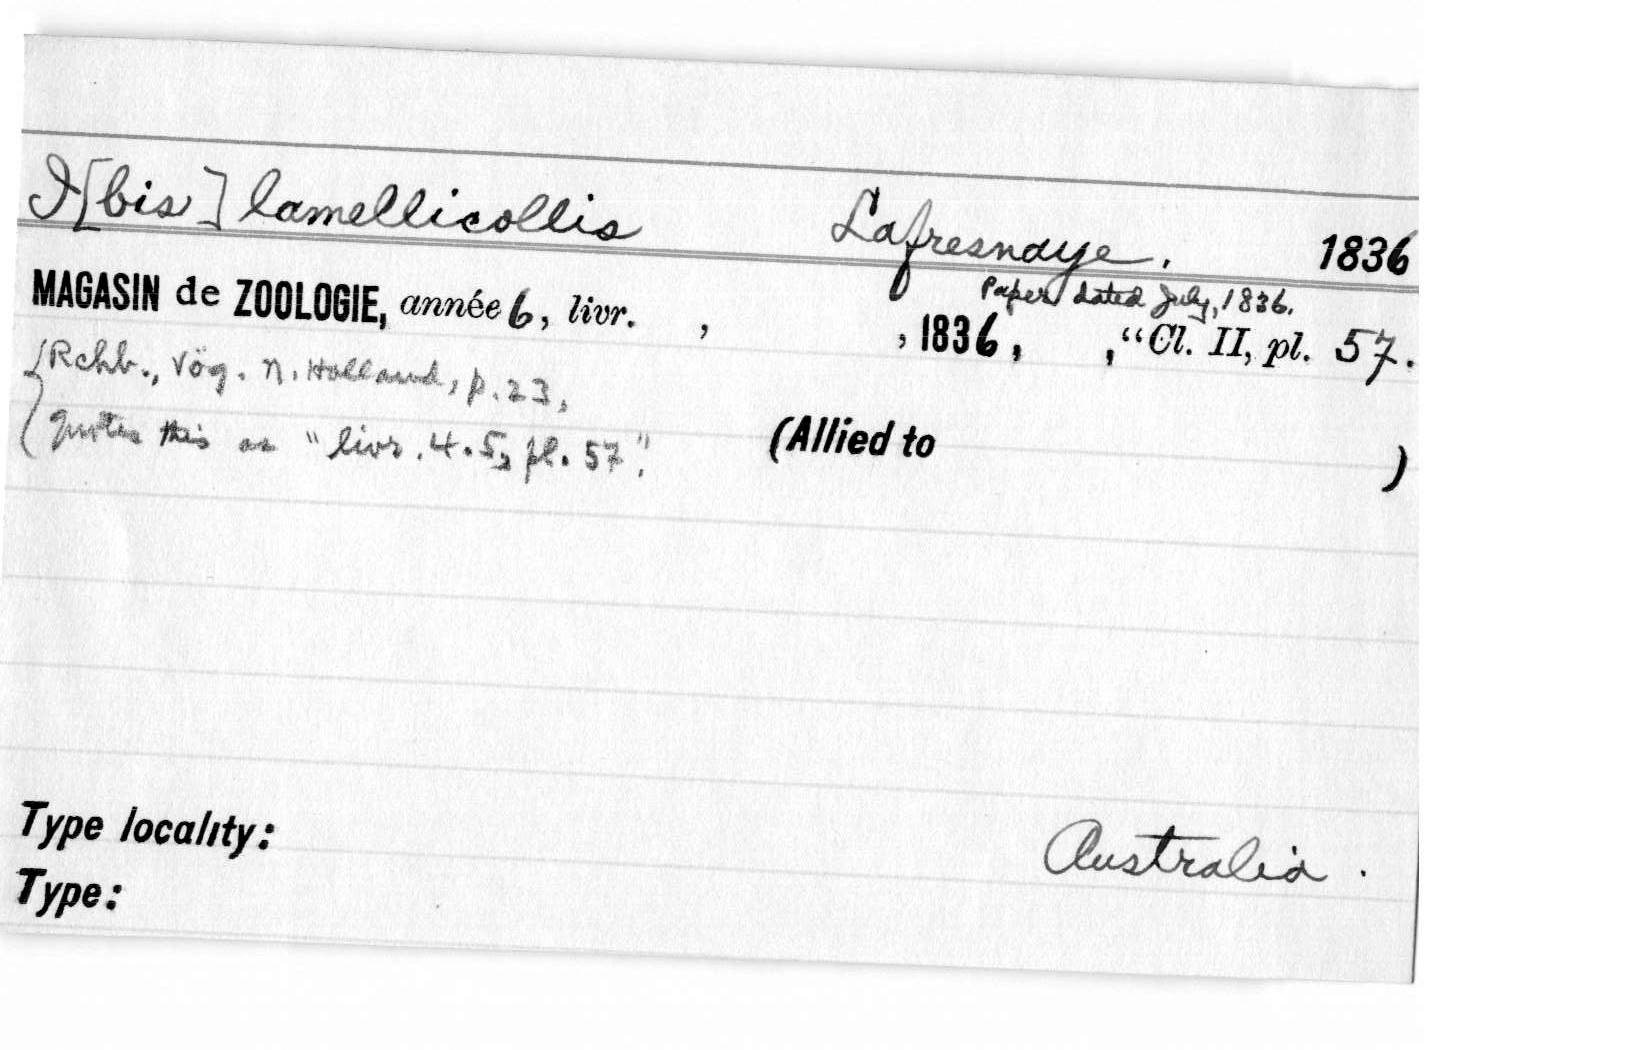 I[bis] lamellicollis Lafresnaye. 1836
Paper dated July, 1836.
MAGASIN de ZOOLOGIE, année 6, livr. , , 1836, ,"Cl. II, pl. 57.
{Rchb., Vög. N. Holland, p. 23,
quotes this as "livr. 4.5, pl. 57".
(Allied to )
Type locality: Australia.
Type: